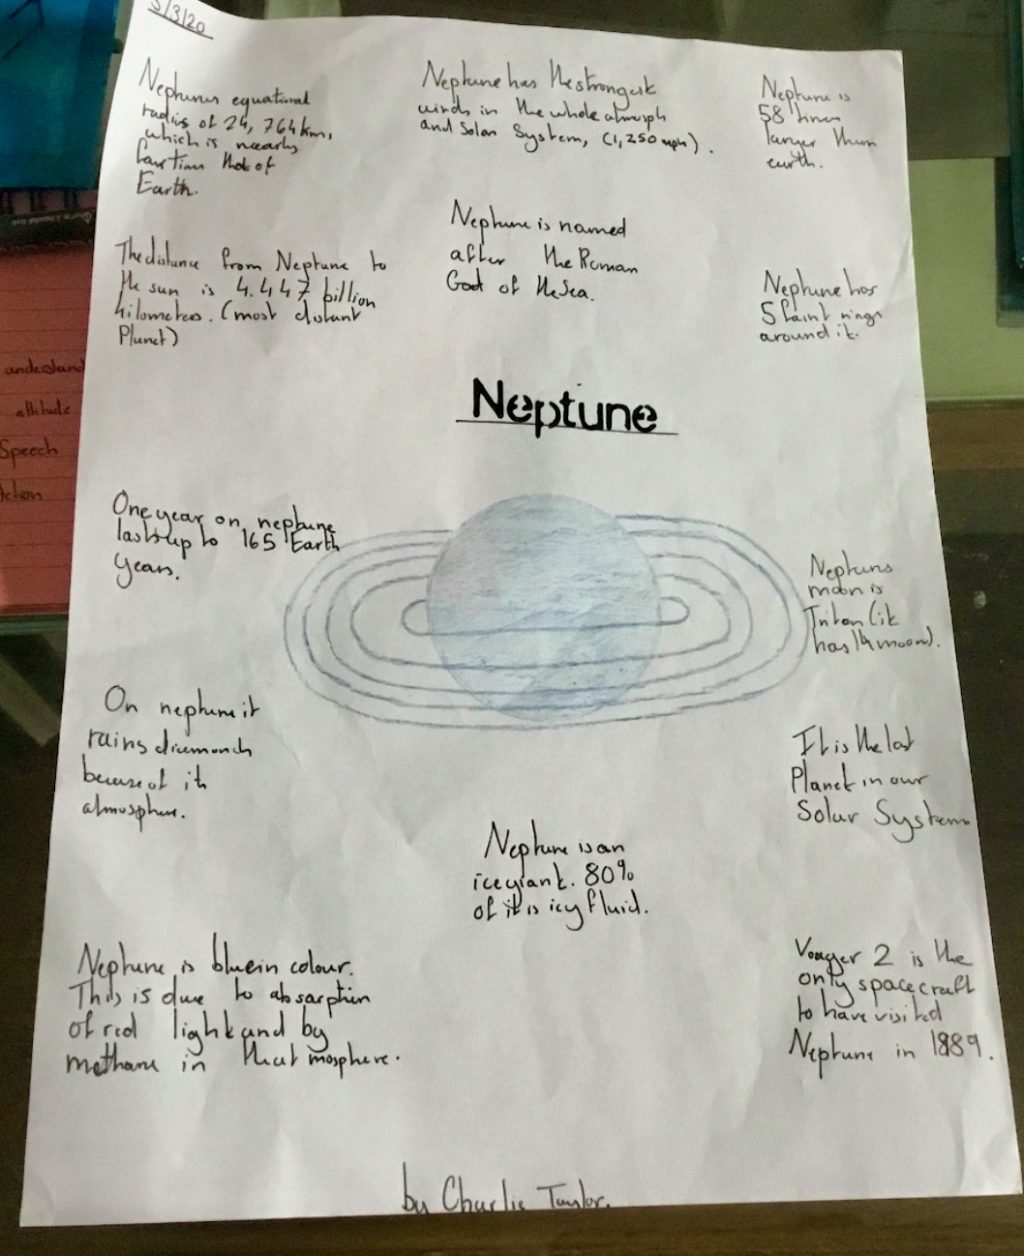 5/3/20
Neptunes equational
radius of 24,764km,
which is nearly
four times that of
Earth.
Neptune has the strongest
winds in the whole atmosph
and Solar System, (1,250 mph).
Neptune is
58 times
larger than
earth.
Neptune is named
after the Roman
God of the Sea.
The distance from Neptune to
the sun is 4.447 billion
kilometres. (most distant
Planet)
Neptune has
5 faint rings
around it.
Neptune
One year on neptune
lasts up to 165 Earth
years.
Neptuns
moon is
Triton (it
has 14 moons).
On neptune it
rains diamonds
because of its
atmosphere.
It is the last
Planet in our
Solar System
Neptune is an
ice giant. 80%
of it is icy fluid.
Neptune is blue in colour.
This is due to absorption
of red light and by
methane in that mosphere.
Voager 2 is the
only spacecraft
to have visited
Neptune in 1989.
by Charlie Taylor.
understand
attitude
Speech
Action